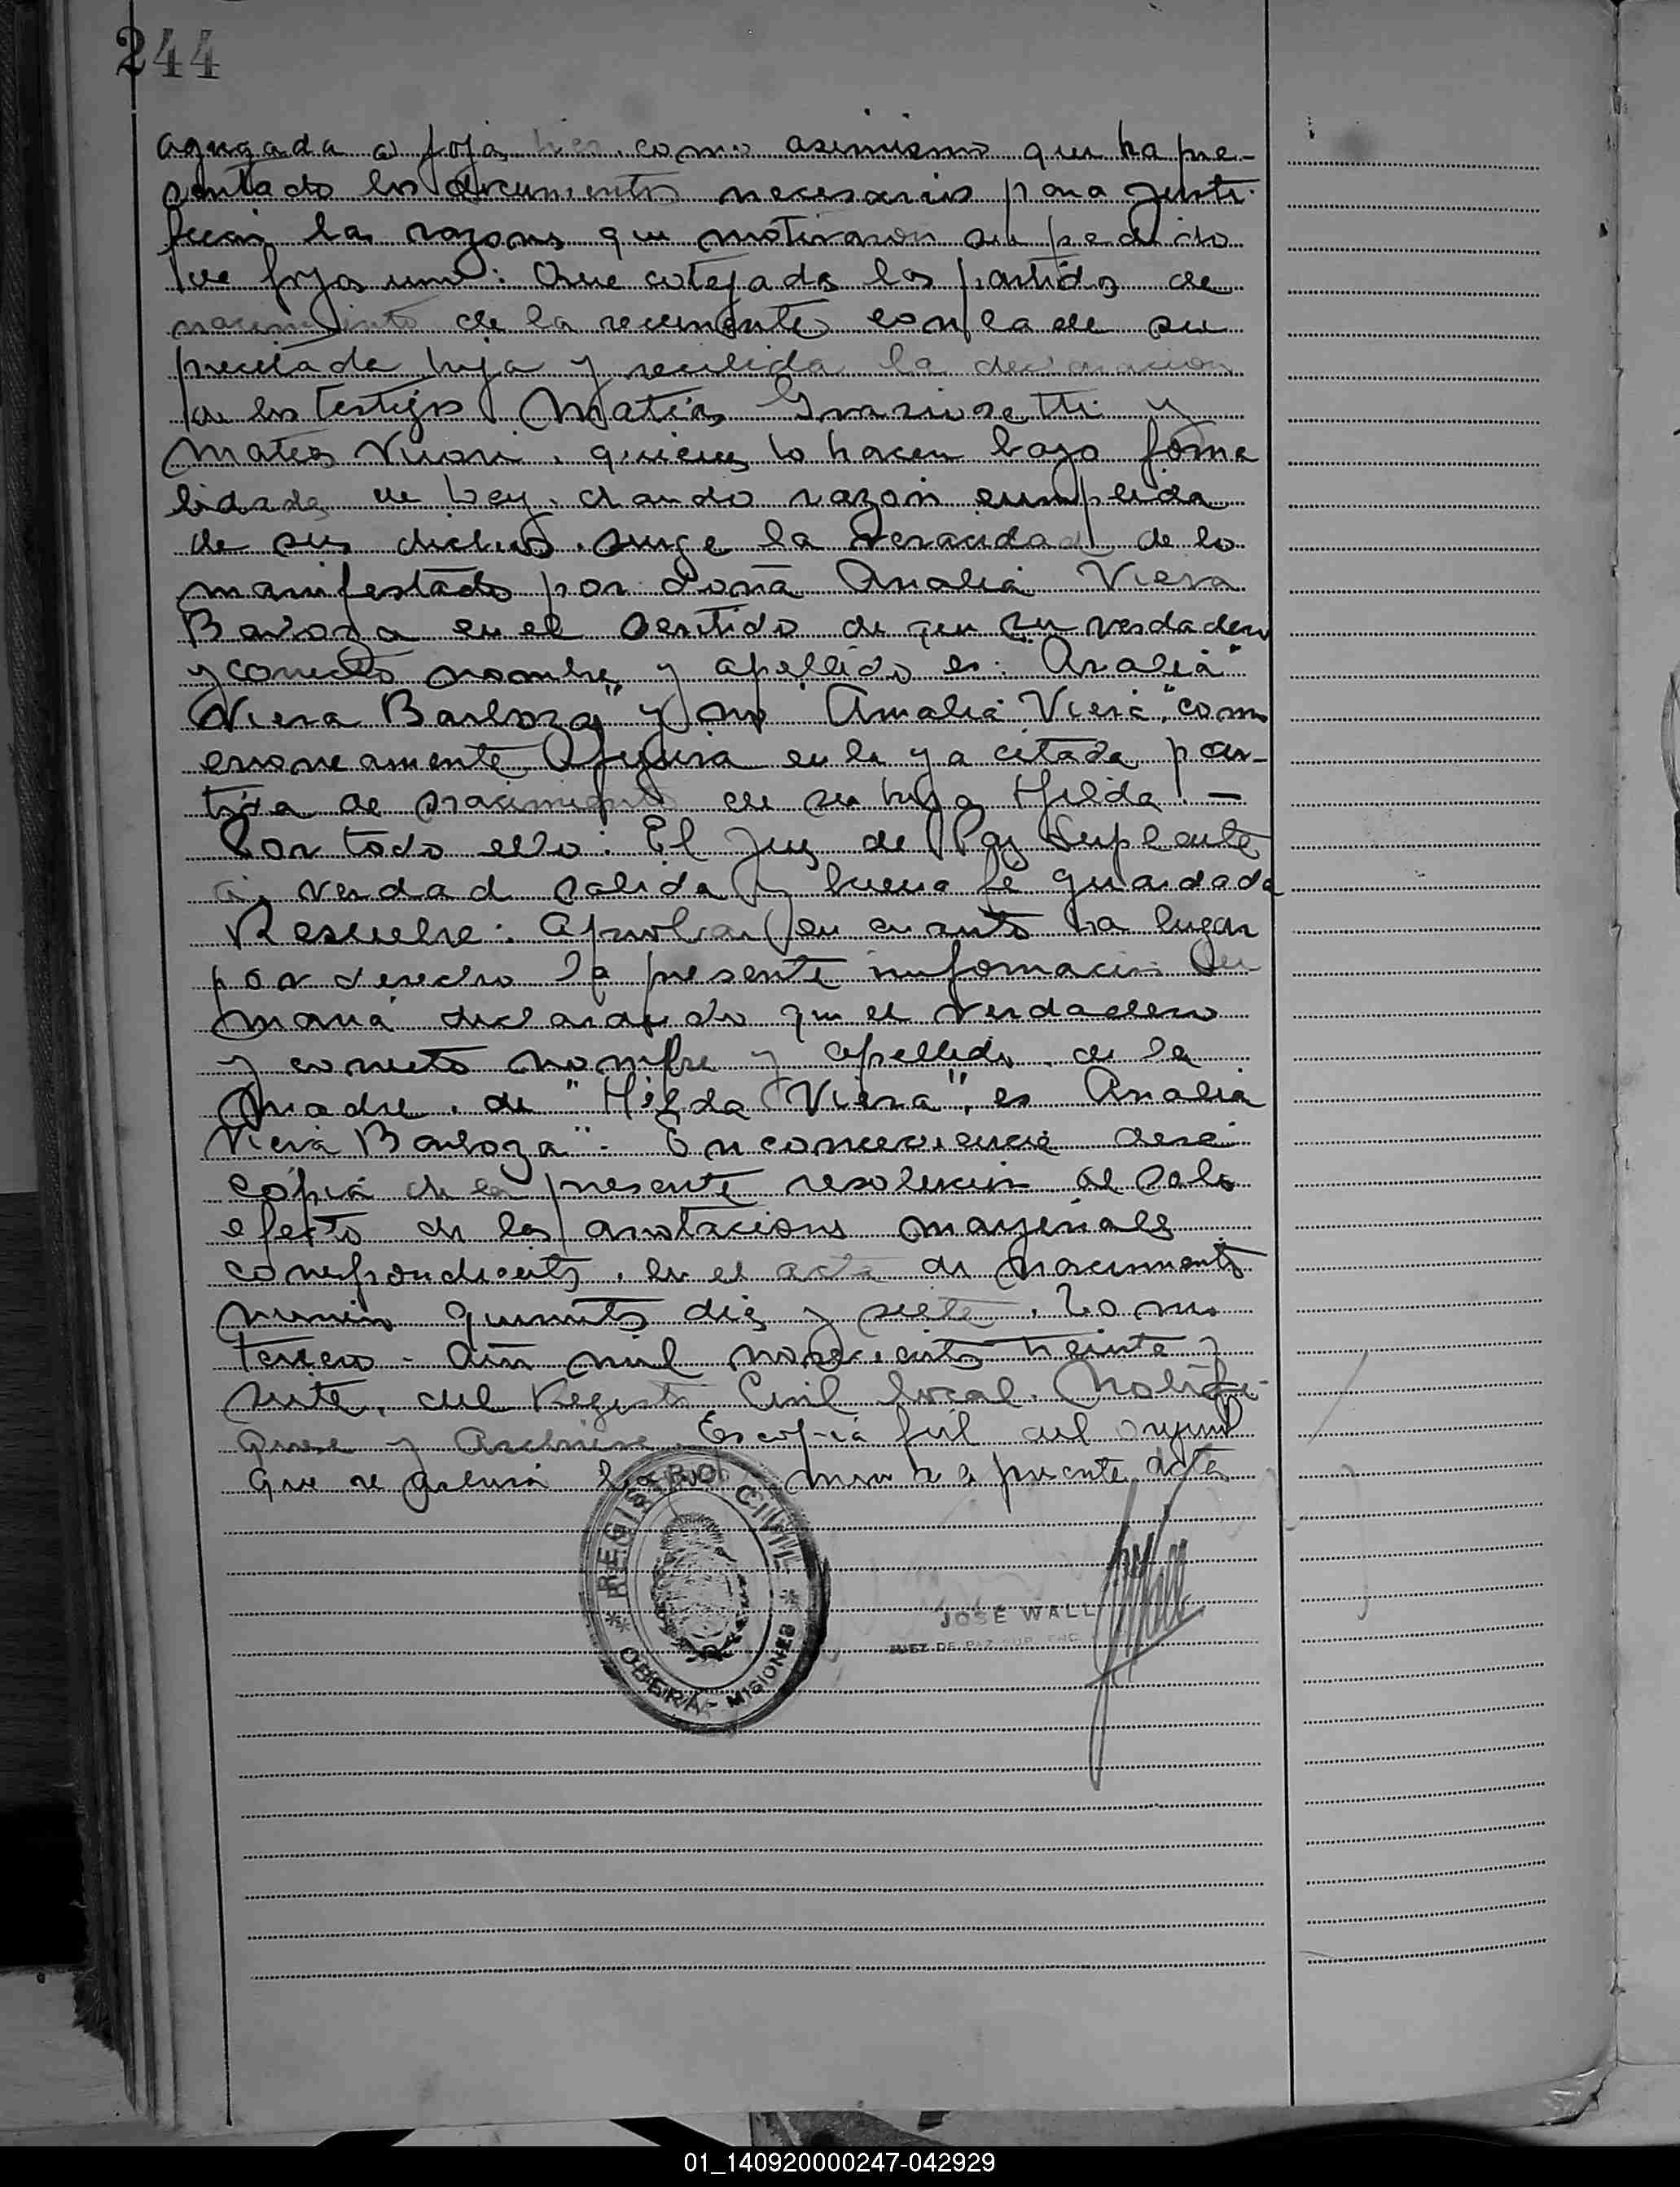 244
agregada a fojas tres. como asimismo que ha pre-
sentado los documentos necesarios para justi-
ficar las razones que motivaron su pedido
de fojas uno: Que cotejada las partidas de
nacimiento de la recurrente con la de su
precitada hija y recibida la declaracion
de los testigos Matias y
Mateo quienes lo hacen bajo forma
lidades de Ley. dando razon cumplida
de sus dichos. surge la veracidad de lo
manifestado por doña Analia Viera
Barboza en el sentido de que su verdadero
y correcto nombre y apellido es: "Analia
Viera Barboza" y no "Amalia Viera", como
erroneamente figura en la ya citada par-
tida de nacimiento de su hija Hilda. —
Por todo ello: El Juez de Paz Suplente
a verdad sabida y buena fe guardada
Resuelve: Aprobar en cuanto ha lugar
por derecho la presente informacion su
maria declarando que el verdadero
y correcto nombre y apellido de la
Madre. de "Hilda Viera", es Analia
Viera Barboza". En consecuencia dese
copia de la presente resolucion al solo
efecto de las anotaciones marginales
correspondientes. en el acta de nacimiento
numero quinientos diez y siete. Tomo
Tercero. Año mil novecientos treinta y
siete, del Registro Civil local. Notifi-
quese y Archivese. Es copia fiel del original
que se archiva bajo numero a la presente acta
REGISTRO CIVIL
OBERÁ - MISIONES
JOSÉ WALL
JUEZ DE PAZ SUP. ENC.
01_140920000247-042929